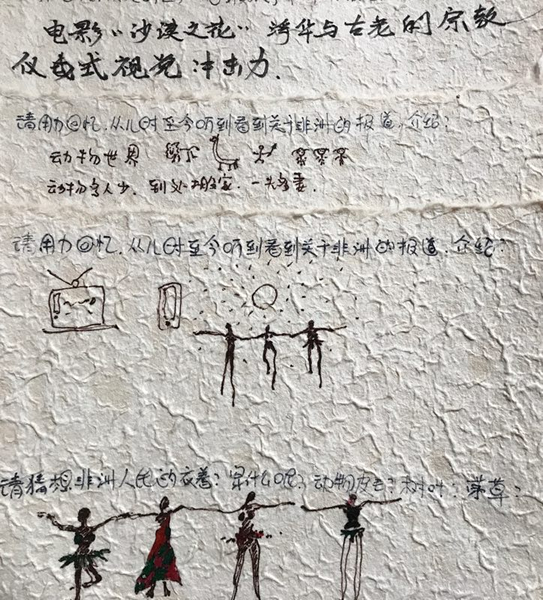 电影"沙漠之花" 奢华与古老的宗教
仪式式视觉冲击力.
请用力回忆.从儿时至今听到看到关于非洲的报道.介绍?
动物世界
动物多人少. 到处搬家.
请用力回忆.从儿时至今听到看到关于非洲的报道.介绍?
请猜想非洲人民的衣着? 动物皮毛? 树叶? 茅草?